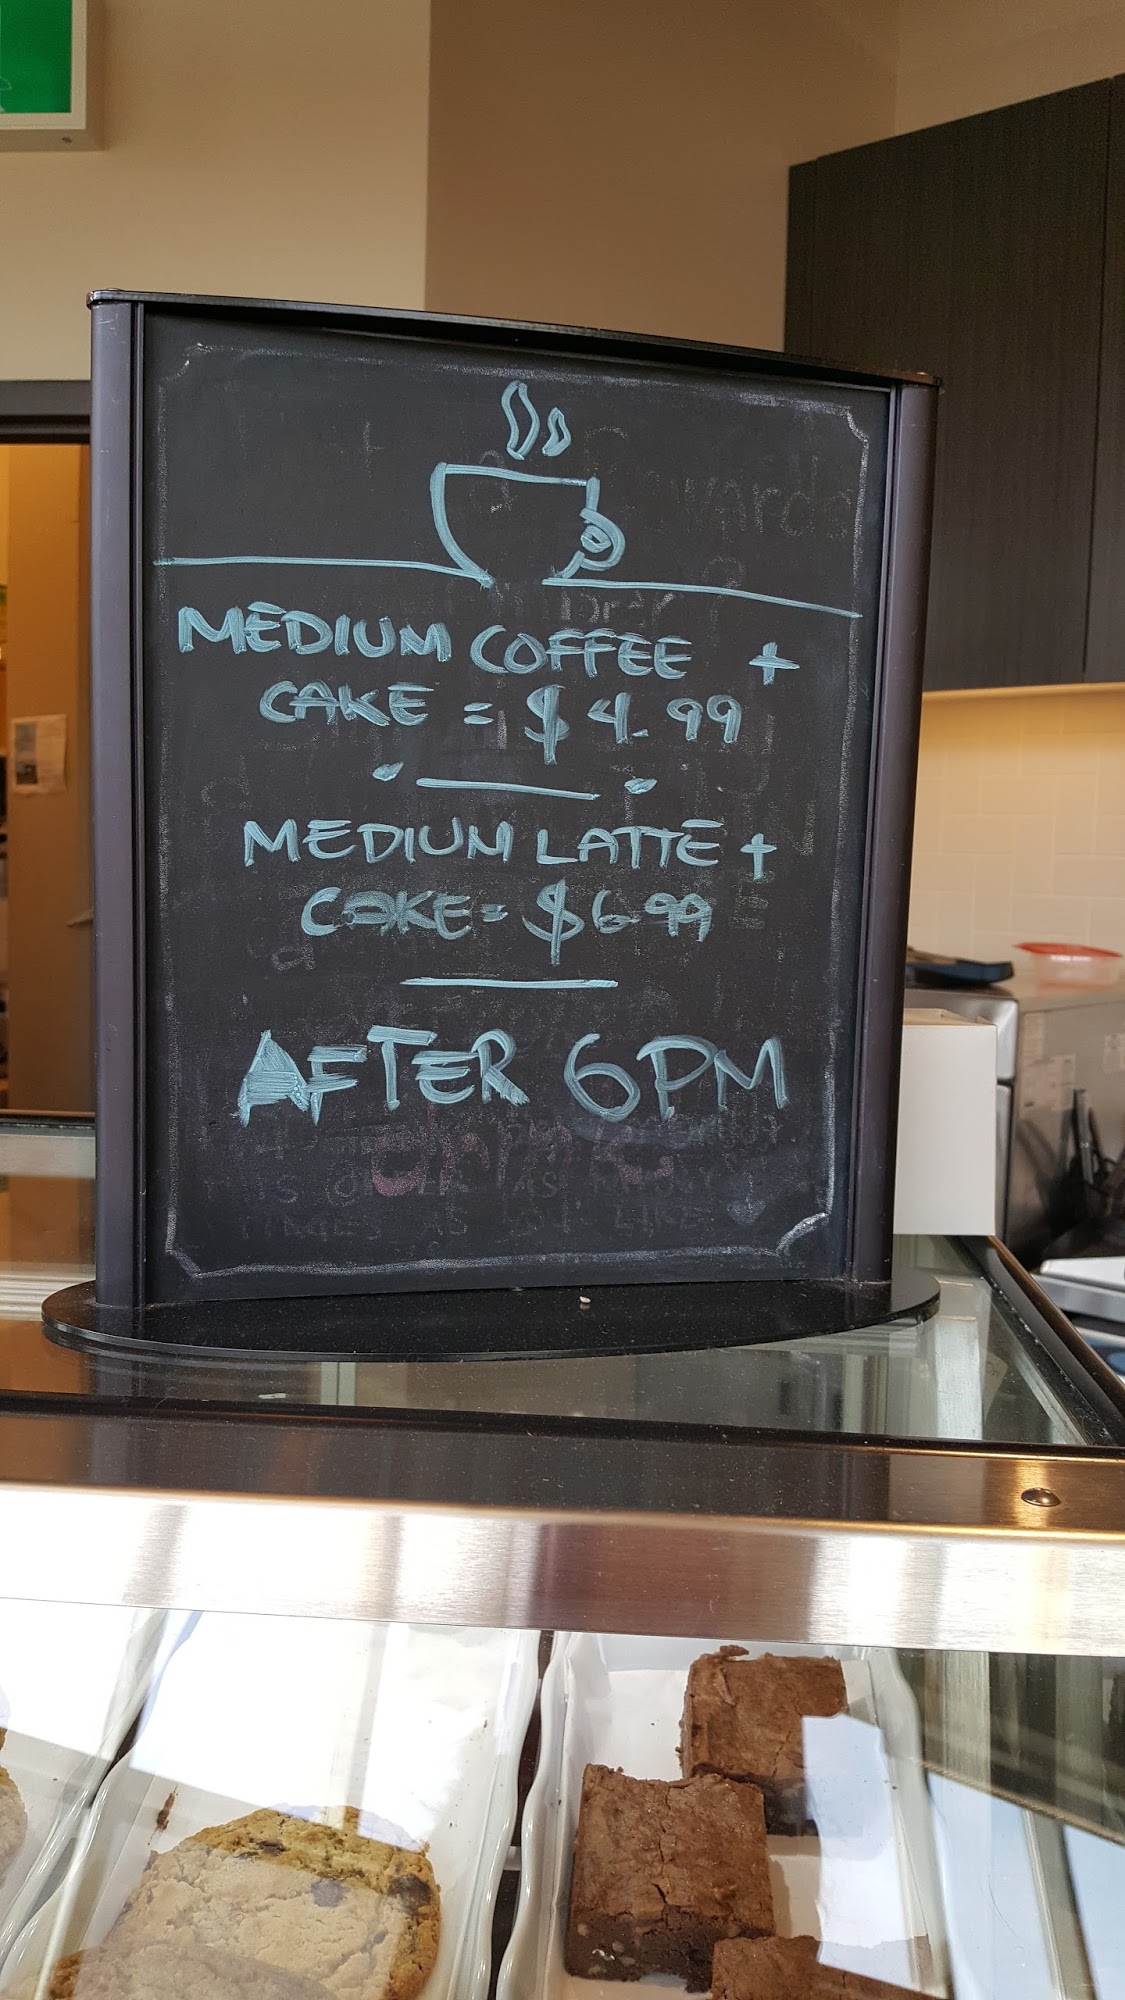 MEDIUM COFFEE +
CAKE = $4.99
MEDIUM LATTE +
CAKE = $6.99
AFTER 6PM